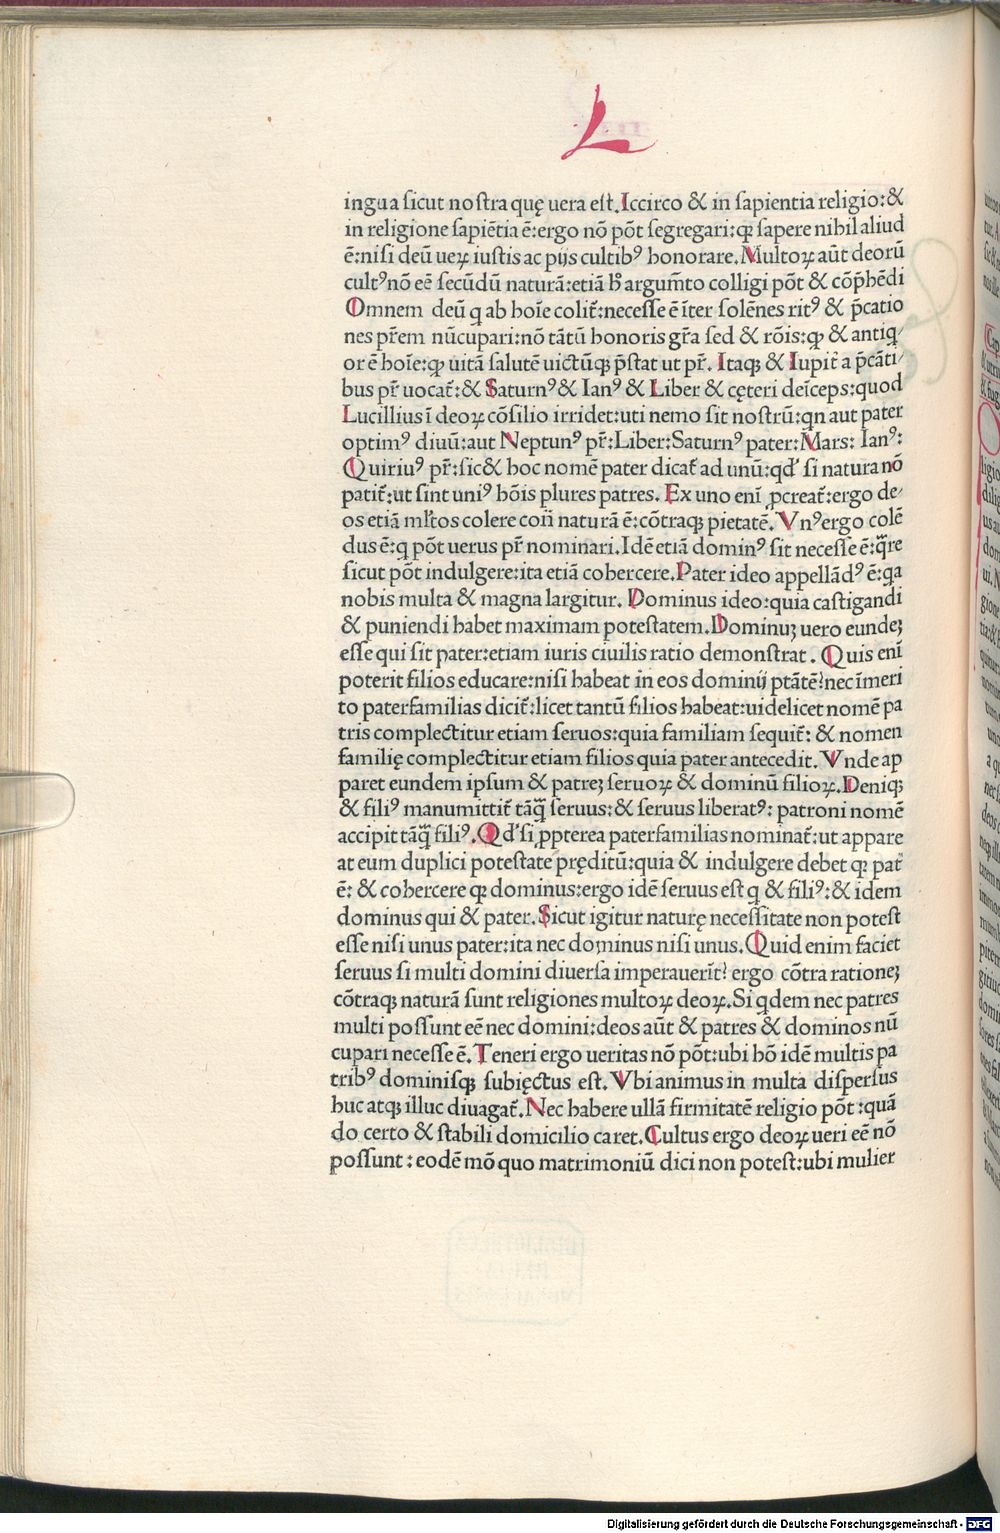 L
ingua sicut nostra quę uera est. Iccirco & in sapientia religio: &
in religione sapiētia ē: ergo nō pōt segregari: qꝫ sapere nihil aliud
ē: nisi deū ueꝝ iustis ac pijs cultibꝰ honorare. Multoꝝ aūt deorū
cultꝰ nō eē secūdū naturā: etiā ħ argum̄to colligi pōt & cōp̄hēdi
Omnem deū q ab hoīe colit̄: necesse ē īter solēnes ritꝰ & p̄catio
nes pr̄em nūcupari: nō tātū honoris gr̄a sed & rōis: qꝫ & antiq⸗
or ē hoīe: qꝫ uitā salutē uictūqꝫ p̄stat ut pr̄. Itaqꝫ & Iupit̄ a p̄cāti⸗
bus pr̄ uocat̄: & Saturnꝰ & Ianꝰ & Liber & cęteri deīceps: quod
Lucillius ī deoꝝ cōsilio irridet: uti nemo sit nostrū: qn aut pater
optimꝰ diuū: aut Neptunꝰ pr̄: Liber: Saturnꝰ pater: Mars: Ianꝰ:
Quiriuꝰ pr̄: sic & hoc nomē pater dicat̄ ad unū: qd' si natura nō
patit̄: ut sint uniꝰ hōis plures patres. Ex uno enī ꝓcreat̄: ergo de⸗
os etiā ml̄tos colere conī naturā ē: cōtraqꝫ pietatē. Vnꝰ ergo colē
dus ē: q pōt uerus pr̄ nominari. Idē etiā dominꝰ sit necesse ē: q̄re
sicut pōt indulgere: ita etiā cohercere. Pater ideo appellādꝰ ē: qa
nobis multa & magna largitur. Dominus ideo: quia castigandi
& puniendi habet maximam potestatem. Dominuꝫ uero eundeꝫ
esse qui sit pater: etiam iuris ciuilis ratio demonstrat. Quis enī
poterit filios educare: nisi habeat in eos dominij ptātē? nec īmeri
to paterfamilias dicit̄: licet tantū filios habeat: uidelicet nomē pa
tris complectitur etiam seruos: quia familiam sequit̄: & nomen
familię complectitur etiam filios quia pater antecedit. Vnde ap
paret eundem ipsum & patreꝫ seruoꝝ & dominū filioꝝ. Deniqꝫ
& filiꝰ manumittit̄ tāq̄ seruus: & seruus liberatꝰ: patroni nomē
accipit tāq̄ filiꝰ. Qd' si ꝓpterea paterfamilias nominat̄: ut appare
at eum duplici potestate pręditū: quia & indulgere debet qꝫ pat̄
ē: & cohercere qꝫ dominus: ergo idē seruus est q & filiꝰ: & idem
dominus qui & pater. Sicut igitur naturę necessitate non potest
esse nisi unus pater: ita nec dominus nisi unus. Quid enim faciet
seruus si multi domini diuersa imperauerīt? ergo cōtra rationeꝫ
cōtraqꝫ naturā sunt religiones multoꝝ deoꝝ. Si qdem nec patres
multi possunt eē nec domini: deos aūt & patres & dominos nū
cupari necesse ē. Teneri ergo ueritas nō pōt: ubi hō idē multis pa
tribꝰ dominisqꝫ subięctus est. Vbi animus in multa dispersus
huc atqꝫ illuc diuagat̄. Nec habere ullā firmitatē religio pōt: quā
do certo & stabili domicilio caret. Cultus ergo deoꝝ ueri eē nō
possunt: eodē mō quo matrimoniū dici non potest: ubi mulier
Digitalisierung gefördert durch die Deutsche Forschungsgemeinschaft - DFG